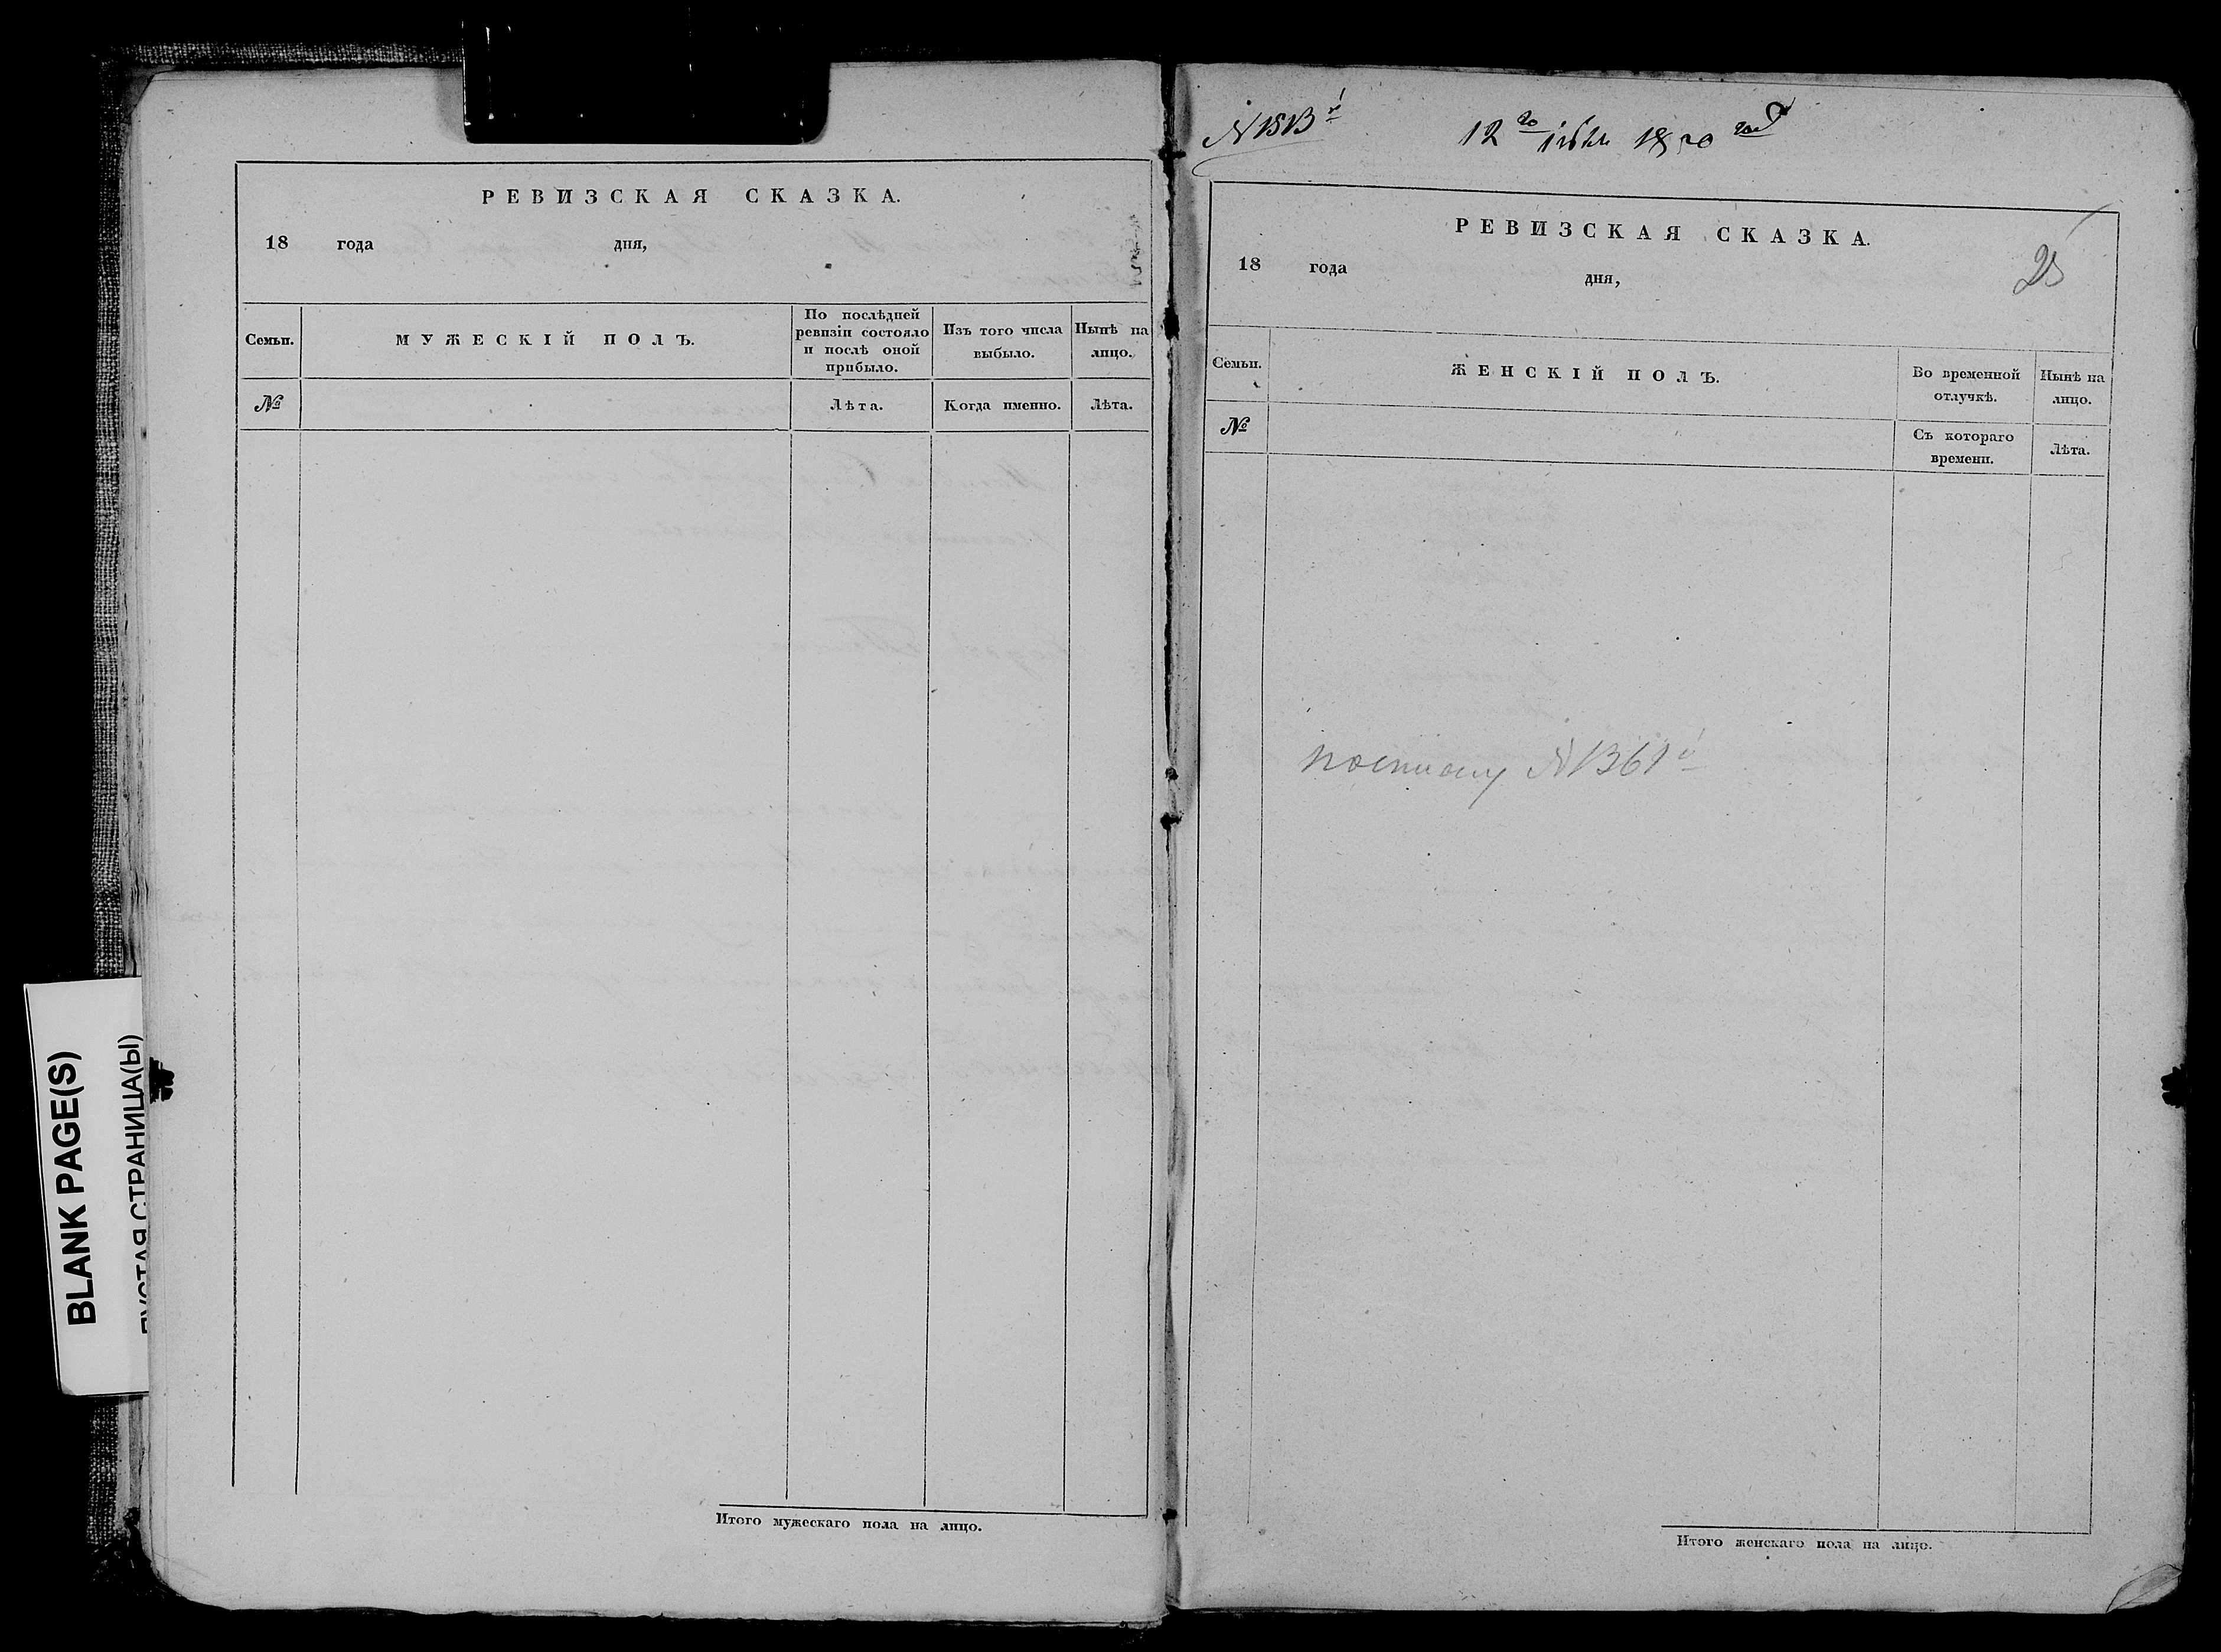 РЕВИЗСКАЯ СКАЗКА.
18 года дня,
Семьи.
МУЖЕСКІЙ ПОЛЪ.
По послѣдней
ревизіи состояло
и послѣ оной
прибыло.
Изъ того числа
выбыло.
Нынѣ на
лицо.
№
Лѣта.
Когда именно.
Лѣта.
Итого мужескаго пола на лицо.
BLANK PAGE(S)
ПУСТАЯ СТРАНИЦА(Ы)
12го 1850
РЕВИЗСКАЯ СКАЗКА.
25
18 года дня,
Семьи.
ЖЕНСКІЙ ПОЛЪ.
Во временной
отлучкѣ.
Нынѣ на
лицо.
№
Съ котораго
времени.
Лѣта.
N 1361й
Итого женскаго пола на лицо.